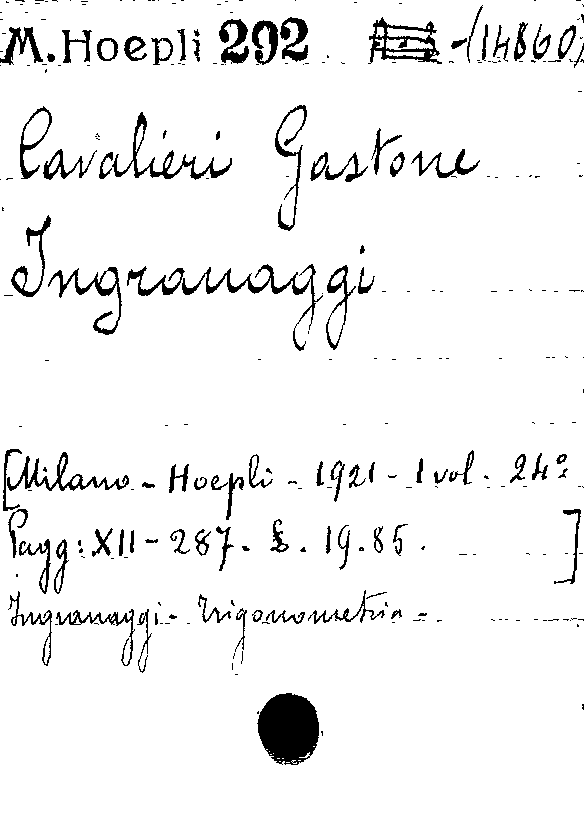 M. Hoepli 292 - (14860)
Cavalieri Gastone
Ingranaggi
[Milano - Hoepli - 1921 - 1 vol. 24°
Pagg: XII - 287. £. 19.85. ]
Ingranaggi - Trigonometria -